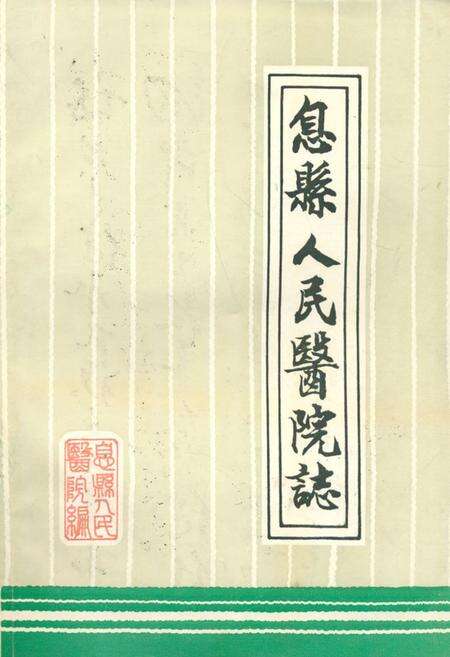 息縣人民醫院誌
息縣人民
醫院編